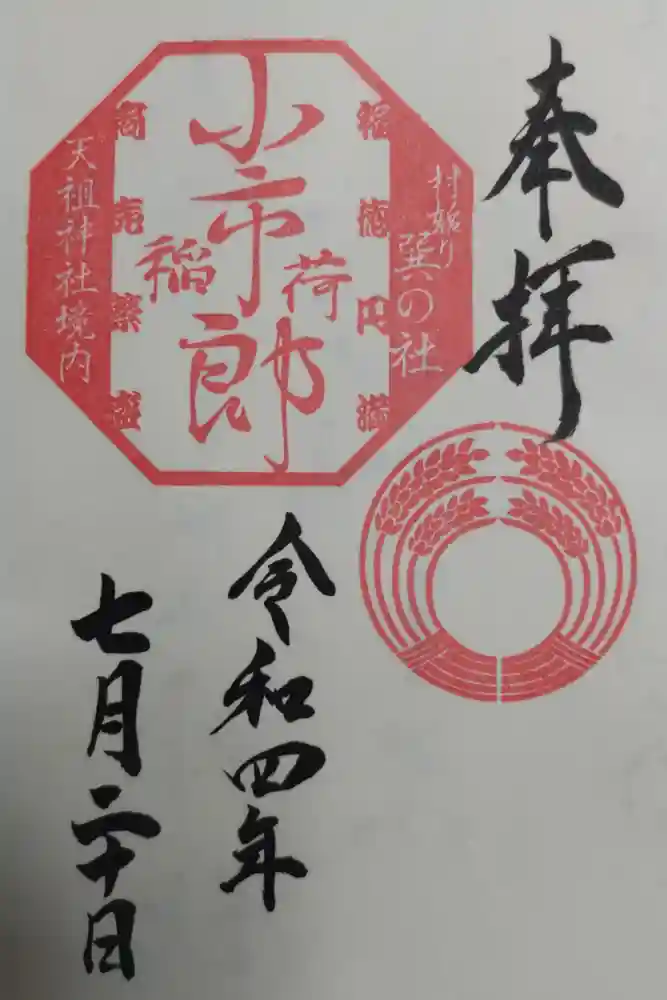 奉拝
村始り
巽の社
福徳円満
小市郎
稲荷
商売繁盛
天祖神社境内
令和四年
七月二十日